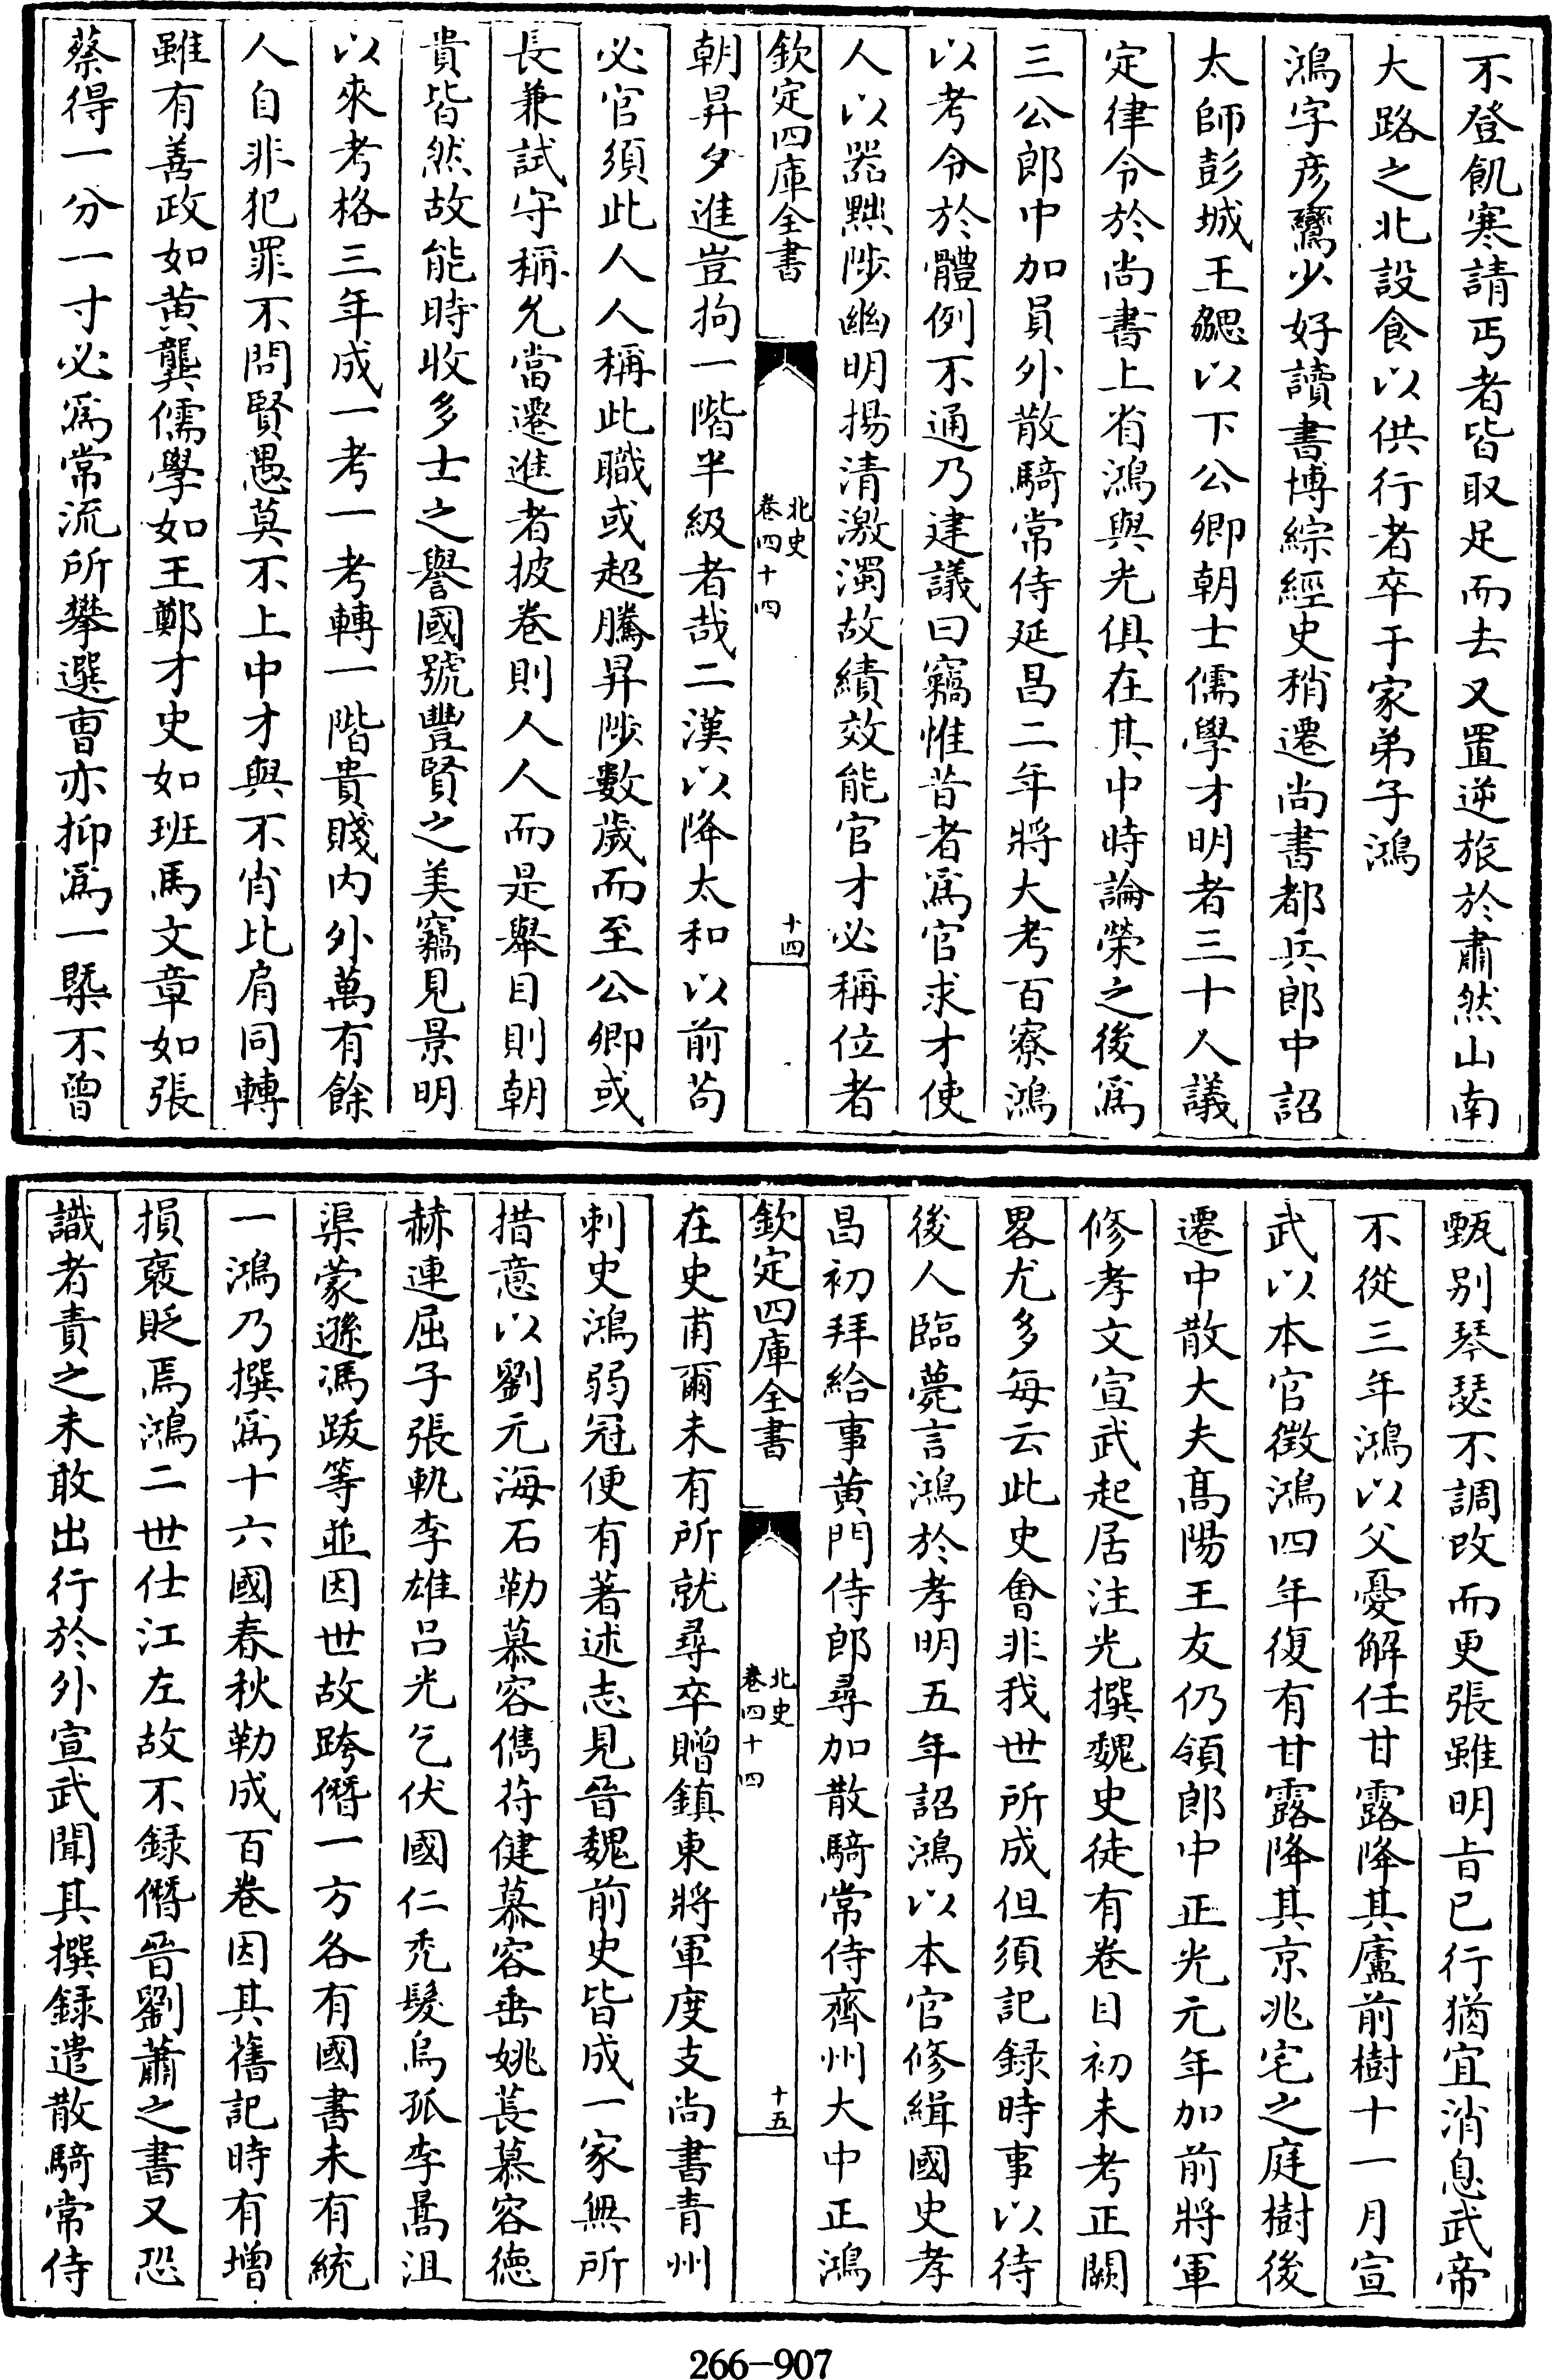 不登飢寒請丐者皆取足而去又置逆旅於肅然山南
大路之北設食以供行者卒于家弟子鴻
鴻字彦鸞少好讀書博綜經史稍遷尚書都兵郎中詔
太師彭城王勰以下公卿朝士儒學才明者三十人議
定律令於尚書上省鴻與光俱在其中時論榮之後爲
三公郎中加員外散騎常侍延昌二年將大考百寮鴻
以考令於體例不通乃建議曰竊惟昔者爲官求才使
人以器黜陟幽明揚清激濁故績效能官才必稱位者
欽定四庫全書
北史
卷四十四
十四
朝昇夕進豈拘一階半級者哉二漢以降太和以前苟
必官須此人人稱此職或超騰昇陟數歲而至公卿或
長兼試守稱允當遷進者披卷則人人而是舉目則朝
貴皆然故能時收多士之譽國號豐賢之美竊見景明
以來考格三年成一考一考轉一階貴賤内外萬有餘
人自非犯罪不問賢愚莫不上中才與不肖比肩同轉
雖有善政如黄龔儒學如王鄭才史如班馬文章如張
蔡得一分一寸必爲常流所攀選曹亦抑爲一槩不曾
甄别琴瑟不調改而更張雖明旨已行猶宜消息武帝
不從三年鴻以父憂解任甘露降其廬前樹十一月宣
武以本官徵鴻四年復有甘露降其京兆宅之庭樹後
遷中散大夫髙陽王友仍領郎中正光元年加前將軍
修孝文宣武起居注光撰魏史徒有卷目初未考正闕
畧尤多每云此史會非我世所成但須記録時事以待
後人臨薨言鴻於孝明五年詔鴻以本官修緝國史孝
昌初拜給事黄門侍郎尋加散騎常侍齊州大中正鴻
欽定四庫全書
北史
卷四十四
十五
在史甫爾未有所就尋卒贈鎮東將軍度支尚書青州
刺史鴻弱冠便有著述志見晉魏前史皆成一家無所
措意以劉元海石勒慕容儁苻健慕容垂姚萇慕容徳
赫連屈子張軌李雄吕光乞伏國仁禿髮烏孤李暠沮
渠蒙遜馮跋等並因世故跨僭一方各有國書未有統
一鴻乃撰爲十六國春秋勒成百卷因其舊記時有增
損褒貶焉鴻二世仕江左故不録僭晉劉蕭之書又恐
識者責之未敢出行於外宣武聞其撰録遣散騎常侍
266-907